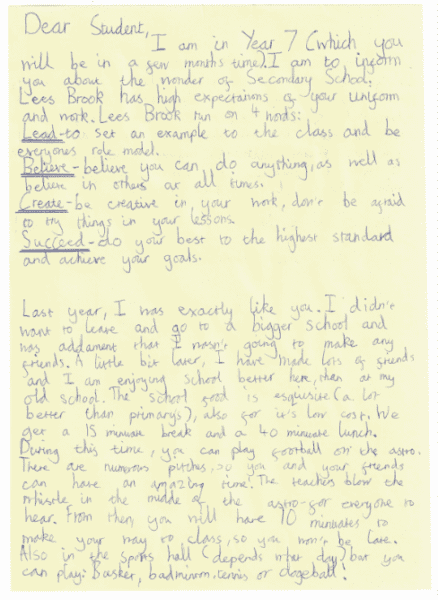 Dear Student,
I am in Year 7 (which you
will be in a few months time). I am to inform
you about the wonder of Secondary School.
Lees Brook has high expectations of your uniform
and work. Lees Brook run on 4 words:
Lead-to set an example to the class and be
everyones role model.
Believe-believe you can do anything, as well as
believe in others at all times.
Create-be creative in your work, don't be afraid
to try things in your lessons.
Succeed-do your best to the highest standard
and achieve your goals.
Last year, I was exactly like you. I didn't
want to leave and go to a bigger school and
was addament that I wasn't going to make any
friends. A little bit later, I have made lots of friends
and I am enjoying school better here, than at my
old school. The school food is esquisite (a lot
better than primarys), also for it's low cost. We
get a 15 minuate break and a 40 minuate lunch.
During this time, you can play football on the astro.
There are numerous pitches, so you and your friends
can have an amazing time. The teachers blow the
whistle in the middle of the astro-for everyone to
hear. From then you will have 10 minuates to
make your way to class, so you won't be late.
Also in the sports hall (depends what day) but you
can play: Basket, badminton, tennis or dogeball!